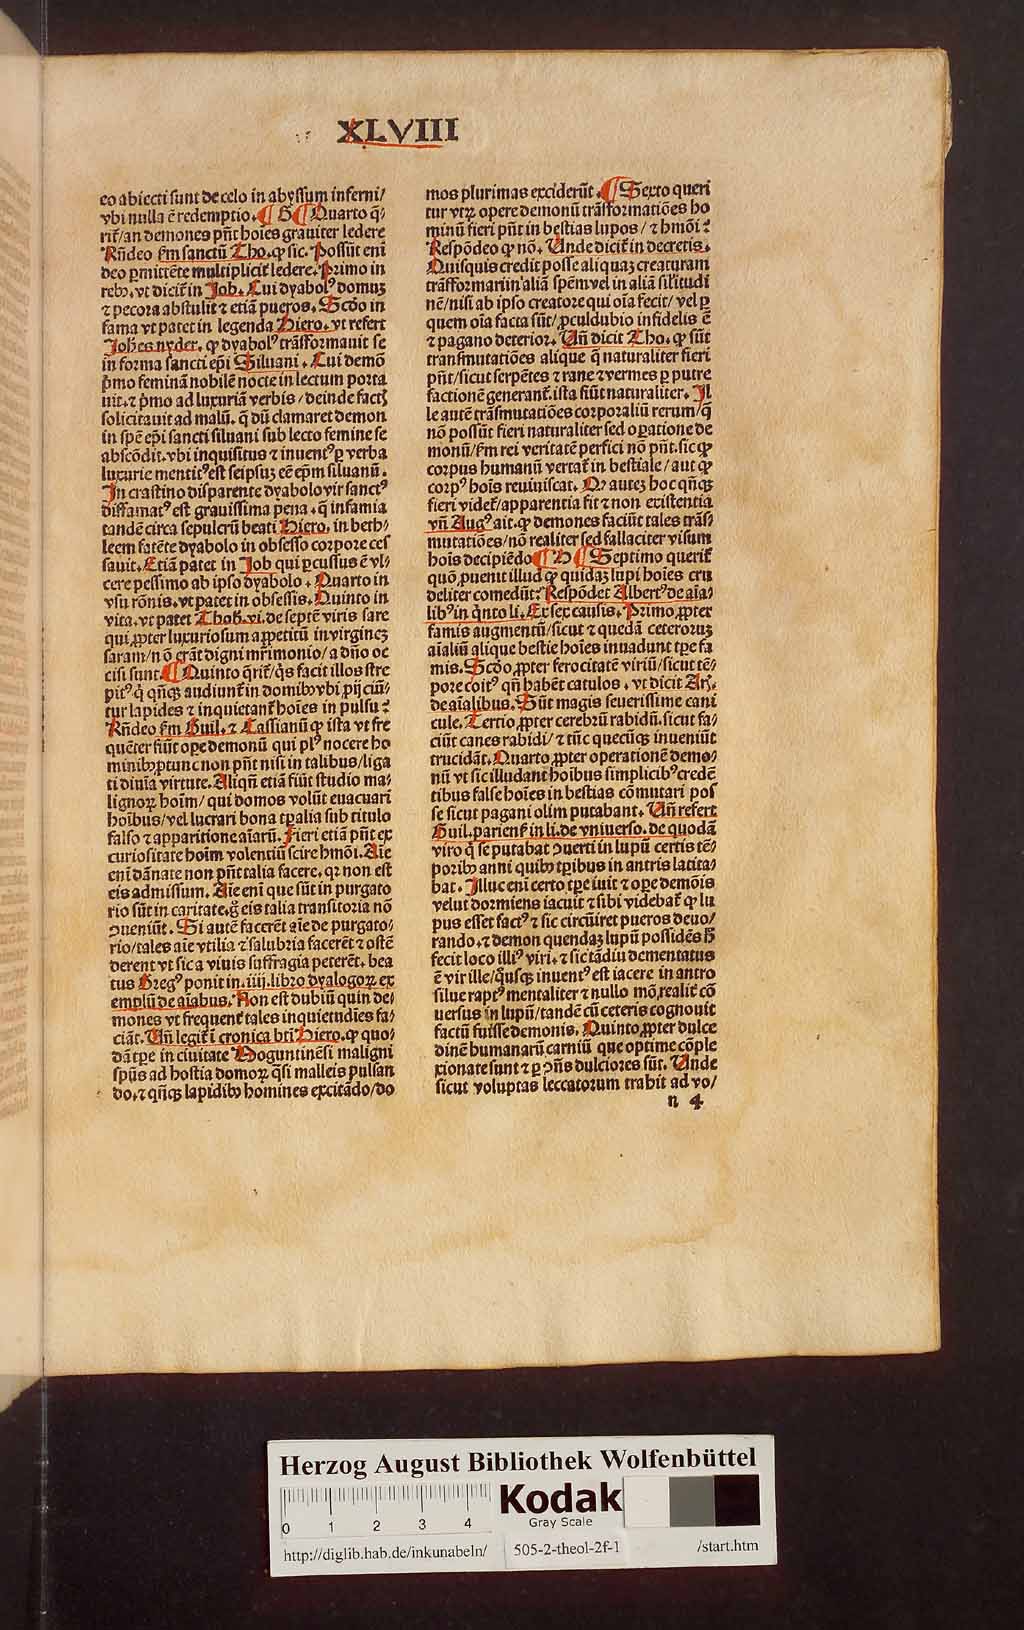 XLVIII
eo abiecti sunt de celo in abyssum inferni/
vbi nulla ē redemptio. ¶ G ¶ Quarto q̄-
rit᷑/an demones pn̄t hoīes grauiter ledere
Rn̄deo s̄m sanctū Tho. ꝙ sic. Possūt eni
deo ꝑmittēte multiplicit᷑ ledere. Primo in
rebꝫ. vt dicit᷑ in Job. Cui dyabolꝰ domuꝫ
⁊ pecora abstulit ⁊ etiā pueros. Scd̄o in
fama vt patet in legenda Hiero. vt refert
Joh̄es nyder. ꝙ dyabolꝰ trāsformauit se
in forma sancti ep̄i Siluani. Cui demō
p̄mo feminā nobilē nocte in lectum porta
uit. ⁊ p̄mo ad luxuriā verbis/deinde factꝭ
solicitauit ad malū. q̄ dū clamaret demon
in spē ep̄i sancti siluani sub lecto femine se
abscōdit. vbi inquisitus ⁊ inuentꝰ ꝑ verba
luxurie mentitꝰ est seipsuꝫ eē ep̄m siluanū.
In crastino disparente dyabolo vir sanctꝰ
diffamatꝰ est grauissima pena. q̄ infamia
tandē circa sepulcrū beati Hiero. in beth-
leem fatēte dyabolo in obsesso corpore ces
sauit. Etiā patet in Job qui ꝑcussus ē vl-
cere pessimo ab ipso dyabolo. Quarto in
vsu rōnis. vt patet in obsessis. Quinto in
vita. vt patet Thob. vi. de septē viris sare
qui ꝓpter luxuriosum appetitū in virgineꝫ
saram/nō erāt digni mr̄imonio/a dn̄o oc
cisi sunt. ¶ Quinto q̄rit᷑/q̄s facit illos stre
pitꝰ q̄ qn̄qꝫ audiunt᷑ in domibꝫ vbi ꝓijciū-
tur lapides ⁊ inquietant᷑ hoīes in pulsu?
Rn̄deo s̄m Guil. ⁊ Cassianū ꝙ ista vt fre
quēter fiūt ope demonū qui plꝰ nocere ho
minibꝫ ꝓtunc non pn̄t nisi in talibus/liga
ti diuīa virtute. Aliqn̄ etiā fiūt studio ma-
lignoꝝ hoīm/qui domos volūt euacuari
hoībus/vel lucrari bona tꝑalia sub titulo
falso ⁊ apparitione aīarū. Fieri etiā pn̄t ex
curiositate hoīm volentiū scire hmōi. Aīe
eni dānate non pn̄t talia facere. qꝛ non est
eis admissum. Aīe eni que sūt in purgato
rio sūt in caritate. g̊ eis talia transitoria nō
ꝯueniūt. Si autē facerēt aīe de purgato-
rio/tales aīe vtilia ⁊ salubria facerēt ⁊ ostē
derent vt sic a viuis suffragia peterēt. bea
tus Gregꝰ ponit in .iiij. libro dyalogoꝝ ex
emplū de aīabus. Non est dubiū quin de-
mones vt frequent᷑ tales inquietudīes fa-
ciāt. Un̄ legit᷑ ī cronica bti Hiero. ꝙ quo-
dā tꝑe in ciuitate Moguntinēsi maligni
spūs ad hostia domoꝝ q̄si malleis pulsan
do. ⁊ qn̄qꝫ lapidibꝫ homines excitādo/do
mos plurimas exciderūt. ¶ Sexto queri
tur vtꝝ opere demonū trāsformatiōes ho
minū fieri pn̄t in bestias lupos/⁊ hmōi?
Respōdeo ꝙ nō. Unde dicit᷑ in decretis.
Quisquis credit posse aliquaꝫ creaturam
trāsformari in aliā spēm vel in aliā sil'itudi
nē/nisi ab ipso creatore qui oīa fecit/vel ꝑ
quem oīa facta sūt/ꝓculdubio infidelis ē
⁊ pagano deterior. Un̄ dicit Tho. ꝙ sūt
transmutatiōes alique q̄ naturaliter fieri
pn̄t/sicut serpētes ⁊ rane ⁊ vermes ꝑ putre
factionē generant᷑. ista fiūt naturaliter. Il
le autē trāsmutatiōes corporaliū rerum/q̄
nō possūt fieri naturaliter sed oꝑatione de
monū/s̄m rei veritatē perfici nō pn̄t. sic ꝙ
corpus humanū vertat᷑ in bestiale/aut ꝙ
corpꝰ hoīs reuiuiscat. Qꝫ auteꝫ hoc qn̄qꝫ
fieri videt᷑/apparentia fit ⁊ non existentia
vn̄ Augꝰ ait. ꝙ demones faciūt tales trās-
mutatiōes/nō realiter sed fallaciter visum
hoīs decipiēdo ¶ H ¶ Septimo querit᷑
quō ꝓuenit illud ꝙ quidaꝫ lupi hoīes cru
deliter comedūt? Respōdet Albertꝰ de aīa-
libꝰ in q̄nto li. Ex sex causis. Primo ꝓpter
famis augmentū/sicut ⁊ quedā ceteroruꝫ
aīaliū alique bestie hoīes inuadunt tꝑe fa
mis. Scd̄o ꝓpter ferocitatē viriū/sicut tē-
pore coitꝰ qn̄ habēt catulos. vt dicit Ar̄.
de aīalibus. Sūt magis seuerissime cani
cule. Tertio ꝓpter cerebrū rabidū. sicut fa-
ciūt canes rabidi/⁊ tūc quecūqꝫ inueniūt
trucidāt. Quarto ꝓpter operationē demo-
nū vt sic illudant hoībus simplicibꝰ credē
tibus false hoīes in bestias cōmutari pos
se sicut pagani olim putabant. Un̄ refert
Guil. parien̄ in li. de vniuerso. de quodā
viro q̄ se putabat ꝯuerti in lupū certis tē-
poribꝫ anni quibꝫ tꝑibus in antris latita-
bat. Illuc eni certo tꝑe iuit ⁊ ope demōis
velut dormiens iacuit ⁊ sibi videbat᷑ ꝙ lu
pus esset factꝰ ⁊ sic circūiret pueros deuo/
rando. ⁊ demon quendaꝫ lupū possidēs h̄
fecit loco illiꝰ viri. ⁊ sic tādiu dementatus
ē vir ille/q̊usqꝫ inuentꝰ est iacere in antro
silue raptꝰ mentaliter ⁊ nullo mō realit᷑ cō
uersus in lupū/tandē cū ceteris cognouit
factū fuisse demonis. Quinto ꝓpter dulce
dinē humanarū carniū que optime cōple
xionate sunt ⁊ ꝑ ꝯn̄s dulciores sūt. Unde
sicut voluptas leccatorum trahit ad vo/
n 4
Herzog August Bibliothek Wolfenbüttel
0 1 2 3 4
Kodak
Gray Scale
http://diglib.hab.de/inkunabeln/ 505-2-theol-2f-1 /start.htm